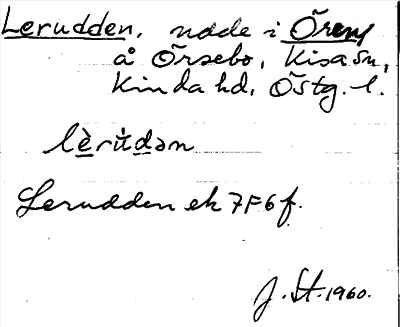 Lerudden, udde i Ören
å Örsebo, Kisa sn,
Kinda hd, Östg. l.
lèru̇dən
Lerudden ek 7F6f.
J. St. 1960.